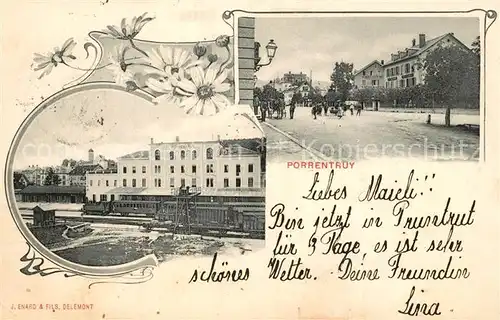 PORRENTRUY
Liebes Maieli!!
Bin jetzt in Pruntrut
für 3 Tage, es ist sehr
schönes Wetter. Deine Freundin
Lina.
J. ENARD & FILS, DELEMONT